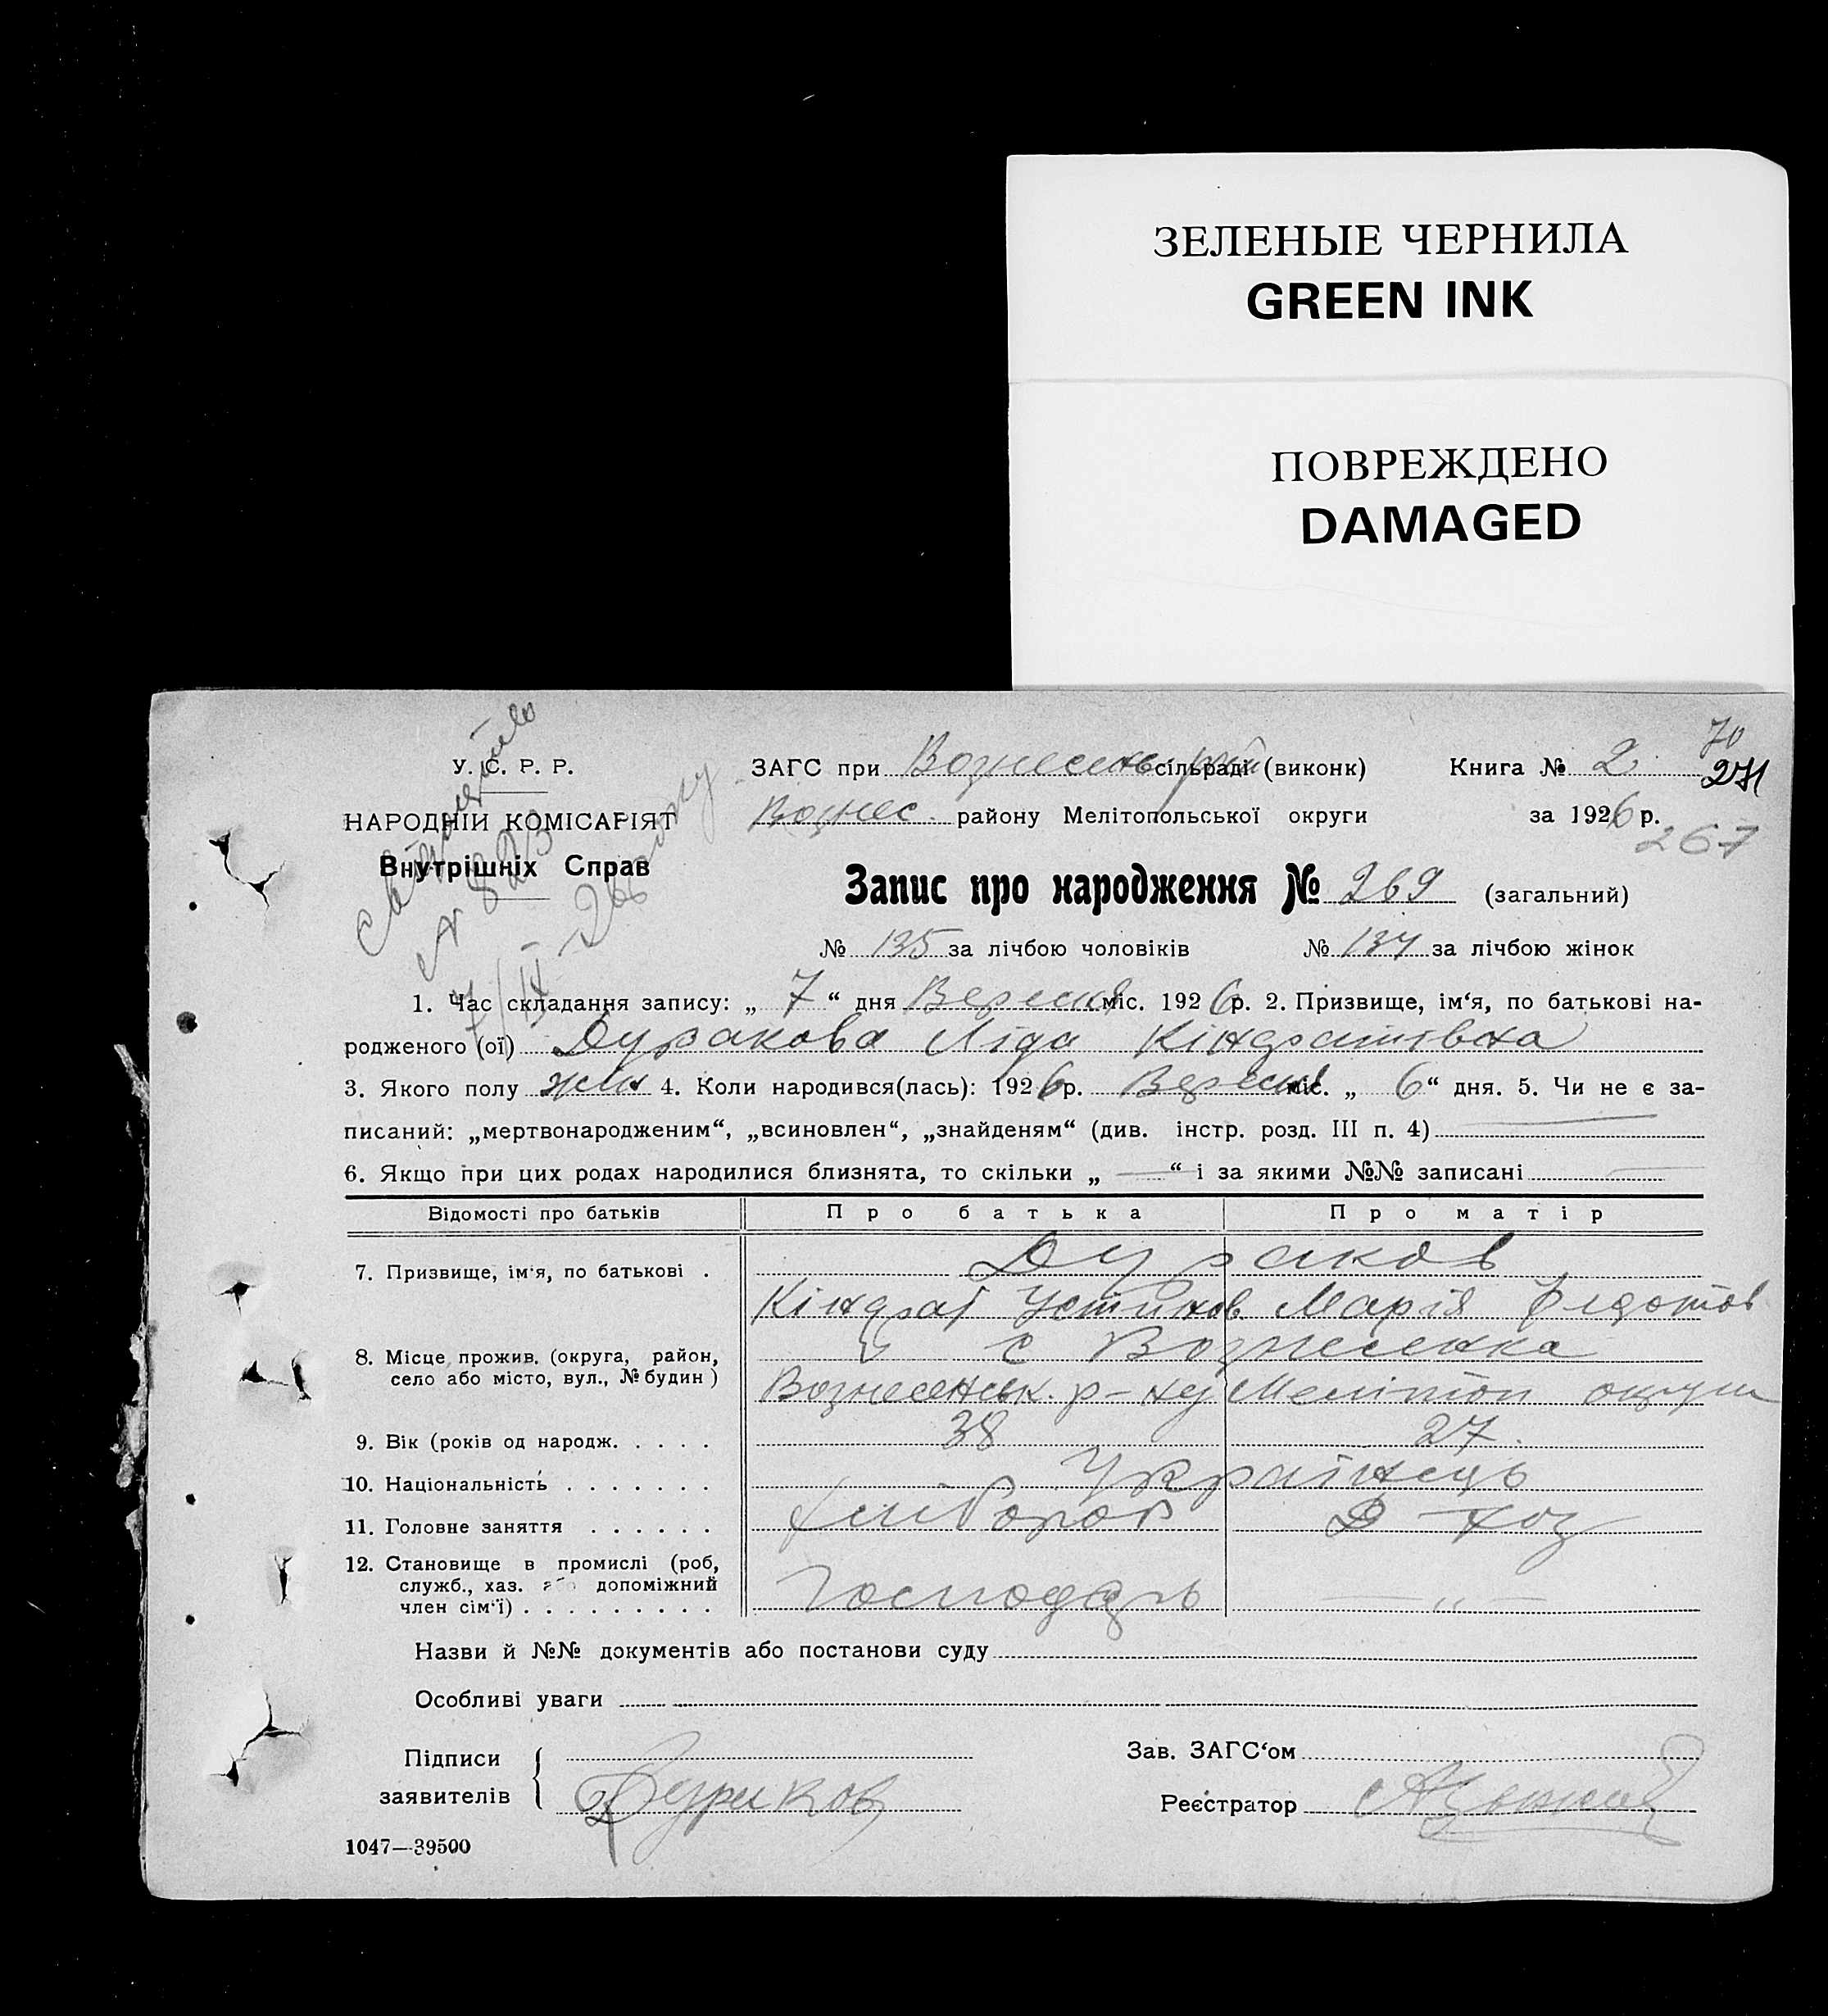 ЗЕЛЕНЫЕ ЧЕРНИЛА
GREEN INK
ПОВРЕЖДЕНО
DAMAGED
70
У. С. Р. Р.
ЗАГС при Вознесенс сільраді (виконк) Книга № 2 271
НАРОДНІЙ КОМІСАРІЯТ
Вознес. району Мелітопольської округи за 1926 р.
267
Внутрішніх Справ
№ 823
Запис про народження № 269 (загальний)
№ 135 за лічбою чоловіків № 134 за лічбою жінок
1. Час складання запису: „ 7 “ дня Вересня міс. 1926 р. 2. Призвище, ім‘я, по батькові на-
родженого (ої) Дуракова Ліда Кіндратівна
3. Якого полу жін 4. Коли народився(лась): 1926 р. Вересня міс. „ 6 “ дня. 5. Чи не є за-
писаний: „мертвонародженим“, „всиновлен“, „знайденям“ (див. інстр. розд. III п. 4)
6. Якщо при цих родах народилися близнята, то скільки „ — “ і за якими №№ записані
Відомості про батьків Про батька Про матір
Дураков
7. Призвище, ім‘я, по батькові .
Кіндрат Устинов Марія Федотов
с Вознесенка
8. Місце прожив. (округа, район,
село або місто, вул., № будин)
Вознесенськ. р-ну Мелітоп округи
9. Вік (років од народж. . . . . 38 27.
10. Національність . . . . . . . Українець
11. Головне заняття . . . . . . хлібороб Д хоз
12. Становище в промислі (роб,
служб., хаз. або допоміжний
член сім‘ї) . . . . . . . . . Господарь — „ —
Назви й №№ документів або постанови суду
Особливі уваги
Підписи
Зав. ЗАГС‘ом
заявителів Дураков
Реєстратор
1047—39500